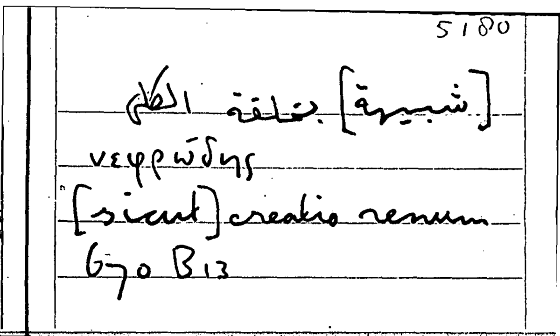 5180
[شبيهة] بخلقة الكلى
νεφρώδης
[sicut] creatio renum
670 B 13